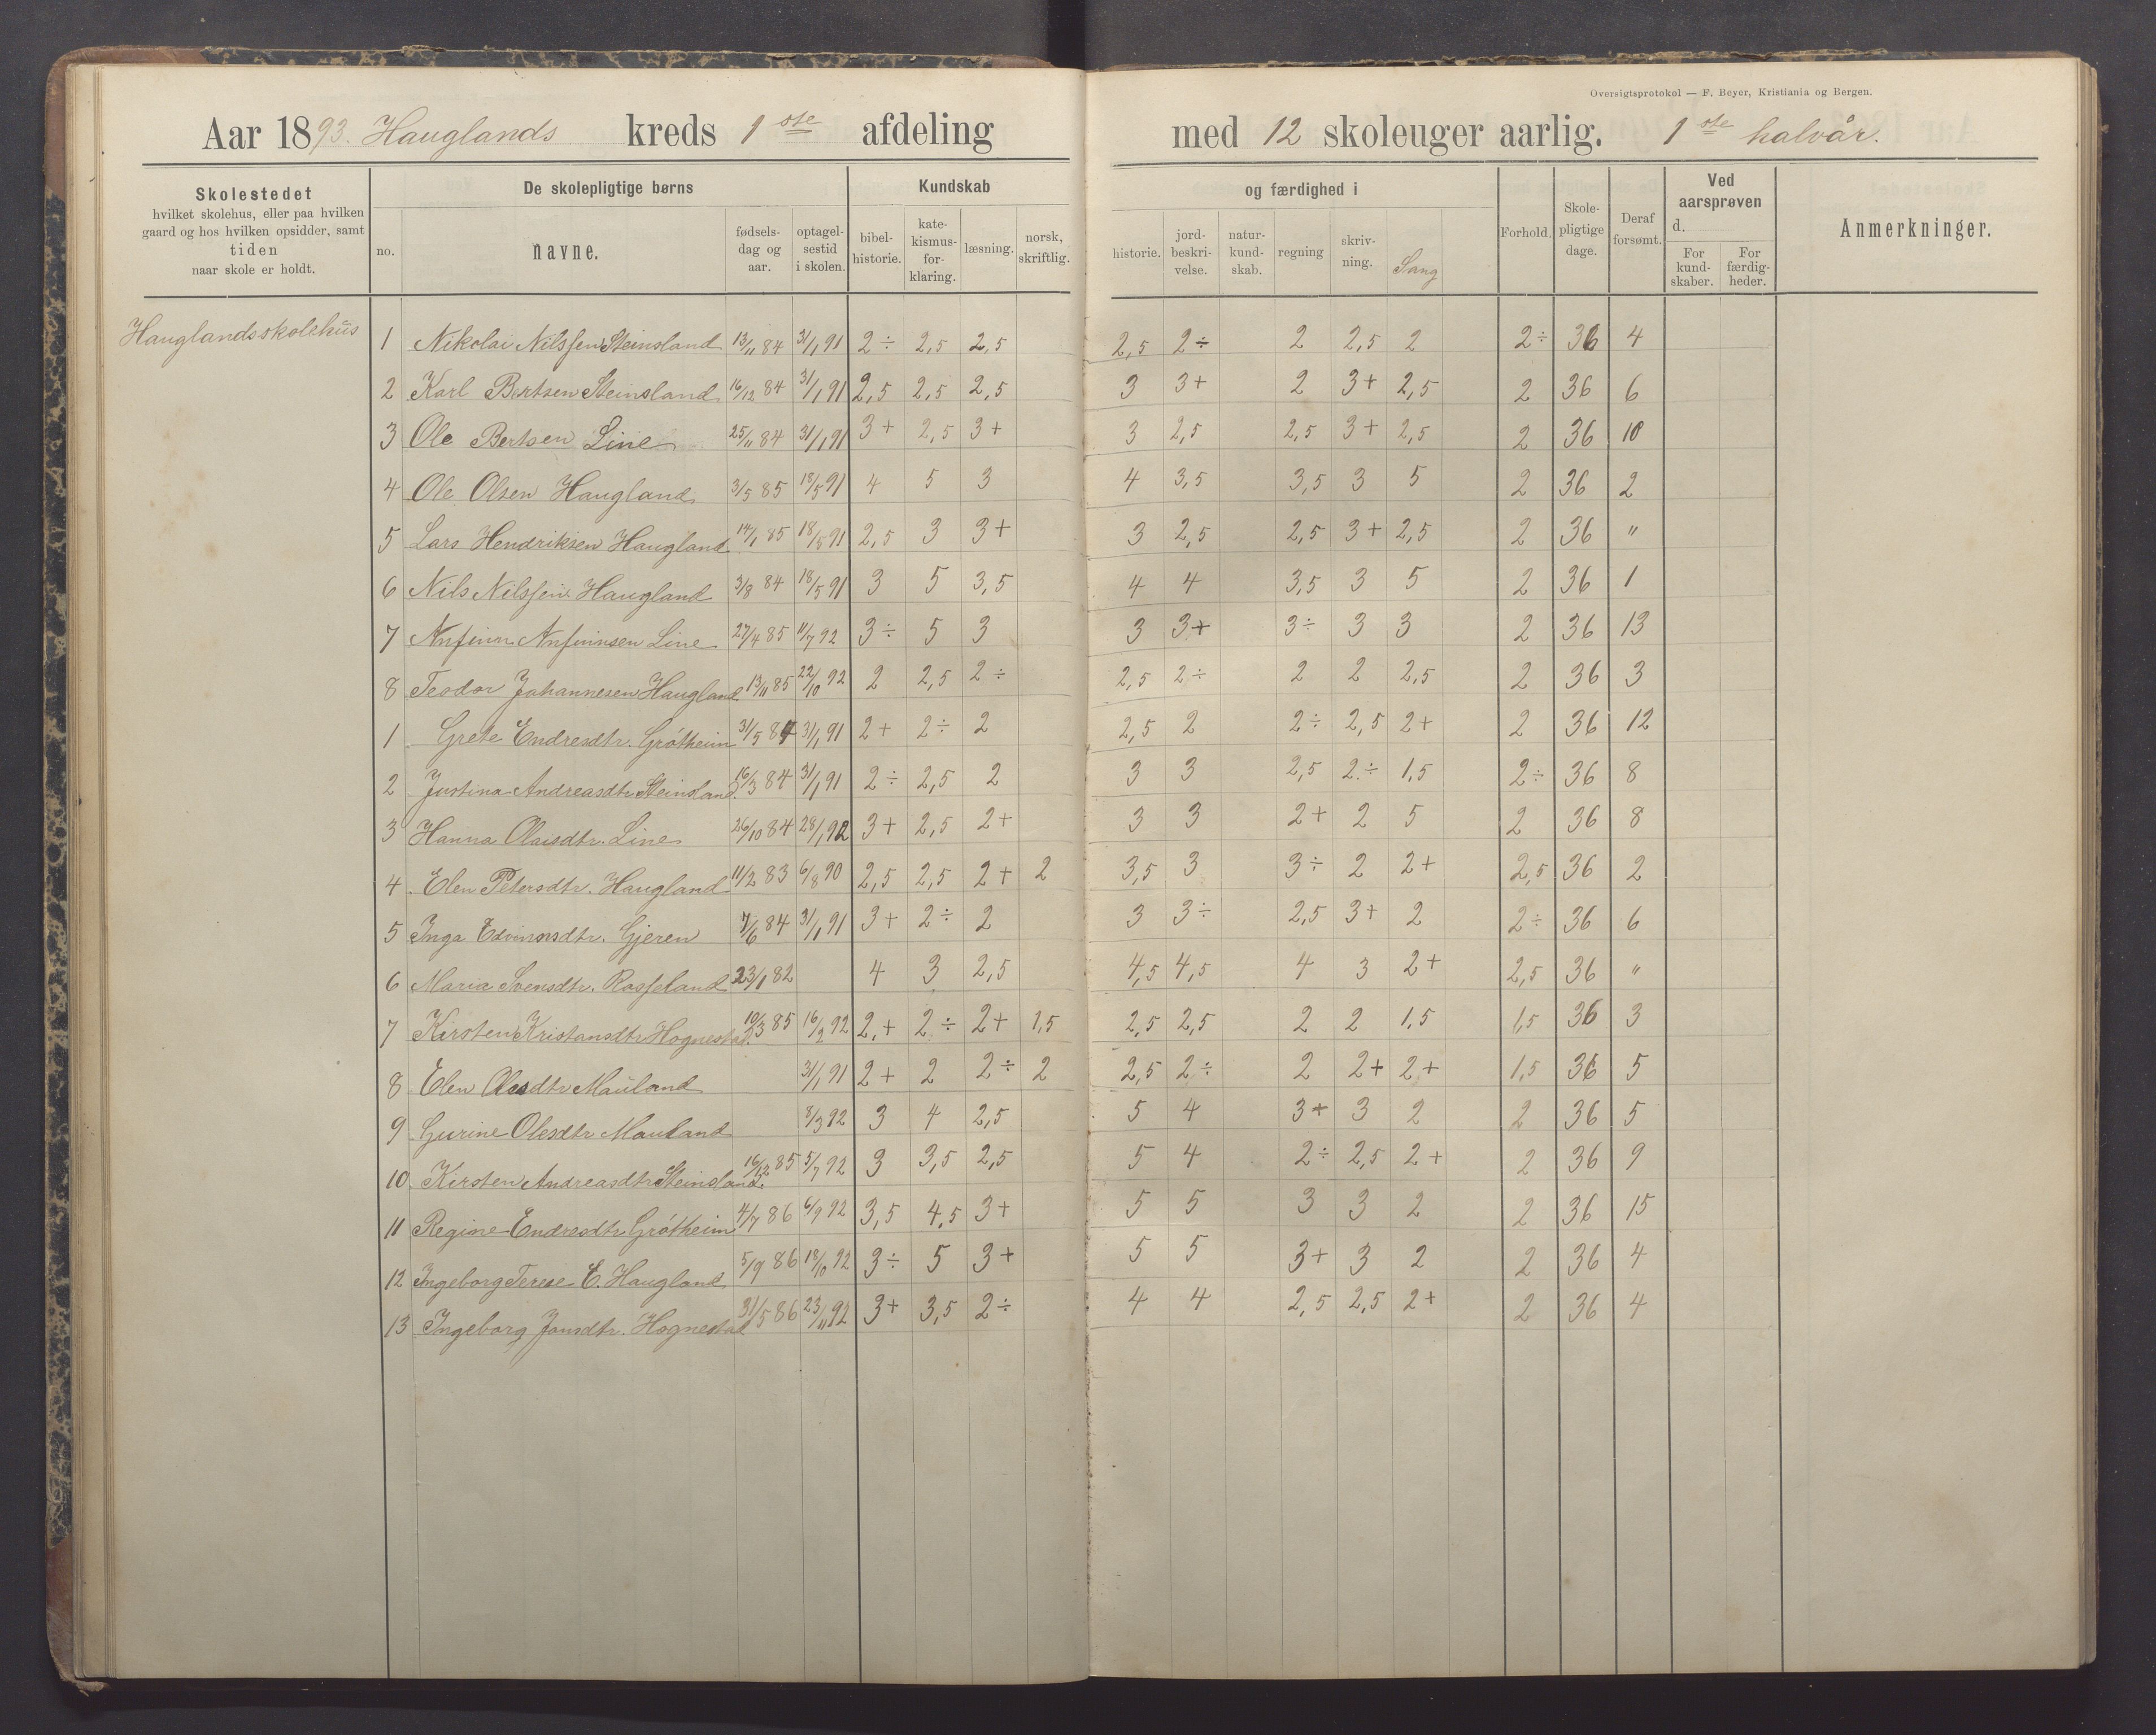 Oversigtsprotokol — F. Beyer, Kristiania og Bergen.
Aar 1893. Hauglands kreds 1ste afdeling med 12 skoleuger aarlig. 1ste halvår.
Skolestedet hvilket skolehus, eller paa hvilken gaard og hos hvilken opsidder, samt tiden naar skole er holdt.
De skolepligtige børns
no. navne. fødsels-dag og aar. optagel-sestid i skolen.
Kundskab og færdighed i
bibel-historie. kate-kismus-for-klaring. læsning. norsk, skriftlig. historie. jord-beskri-velse. natur-kund-skab. regning skriv-ning. Sang
Forhold. Skole-pligtige dage. Deraf forsømt.
Ved aarsprøven d. For kund-skaber. For færdig-heder.
Anmerkninger.
Hauglandsskolehus
1 Nikolai Nilssen Steinsland 13/11 84 31/1 91 2÷ 2,5 2,5 2,5 2÷ 2 2,5 2 2÷ 36 4
2 Karl Bertsen Steinsland 16/12 84 31/1 91 2,5 2,5 2,5 3 3+ 2 3+ 2,5 2 36 6
3 Ole Bertsen Line 25/11 84 31/1 91 3+ 2,5 3+ 3 2,5 2,5 3+ 2,5 2 36 10
4 Ole Olsen Haugland 3/5 85 18/5 91 4 5 3 4 3,5 3,5 3 5 2 36 2
5 Lars Hendriksen Haugland 14/1 85 18/5 91 2,5 3 3+ 3 2,5 2,5 3+ 2,5 2 36 "
6 Nils Nilssen Haugland 3/8 84 18/5 91 3 5 3,5 4 4 3,5 3 5 2 36 1
7 Anfinn Anfinnsen Line 27/4 85 11/7 92 3÷ 5 3 3 3+ 3÷ 3 3 2 36 13
8 Teodor Johannesen Haugland 13/11 85 22/10 92 2 2,5 2÷ 2,5 2÷ 2 2 2,5 2 36 3
1 Grete Endresdtr. Grótheim 31/5 84 31/1 91 2+ 2÷ 2 2,5 2 2÷ 2,5 2+ 2 36 12
2 Justina Andreasdtr Steinsland 16/3 84 31/1 91 2÷ 2,5 2 3 3 2,5 2÷ 1,5 2÷ 36 8
3 Hanna Olaisdtr. Line 26/10 84 28/1 92 3+ 2,5 2+ 3 3 2+ 2 5 2 36 8
4 Elen Petersdtr. Haugland 11/2 83 6/8 90 2,5 2,5 2+ 2 3,5 3 3÷ 2 2+ 2,5 36 2
5 Inga Edvinsdtr. Gjeren 7/6 84 31/1 91 3+ 2÷ 2 3 3÷ 2,5 3+ 2 2÷ 36 6
6 Maria Svensdtr. Rosseland 23/1 82 4 3 2,5 4,5 4,5 4 3 2+ 2,5 36 "
7 Kirsten Kristansdtr Hognestad 10/3 85 16/2 92 2+ 2÷ 2+ 1,5 2,5 2,5 2 2 1,5 1,5 36 3
8 Elen Olesdtr Mauland 31/1 91 2+ 2 2÷ 2 2,5 2÷ 2 2+ 2+ 1,5 36 5
9 Gurine Olesdtr Mauland 8/3 92 3 4 2,5 5 4 3+ 3 2 2 36 5
10. Kirsten Andreasdtr Steinsland. 16/12 85 5/7 92 3 3,5 2,5 5 4 2÷ 2,5 2+ 2 36 9
11 Regine Endresdtr Grótheim 4/7 86 6/9 92 3,5 4,5 3+ 5 5 3 3 2 2 36 15
12 Ingeborg Terese E. Haugland 5/9 86 18/10 92 3÷ 5 3+ 5 5 3+ 3 2 2 36 4
13 Ingeborg Jonsdtr. Hognestad 31/5 86 23/11 92 3+ 3,5 2÷ 4 4 2,5 2,5 2+ 2 36 4